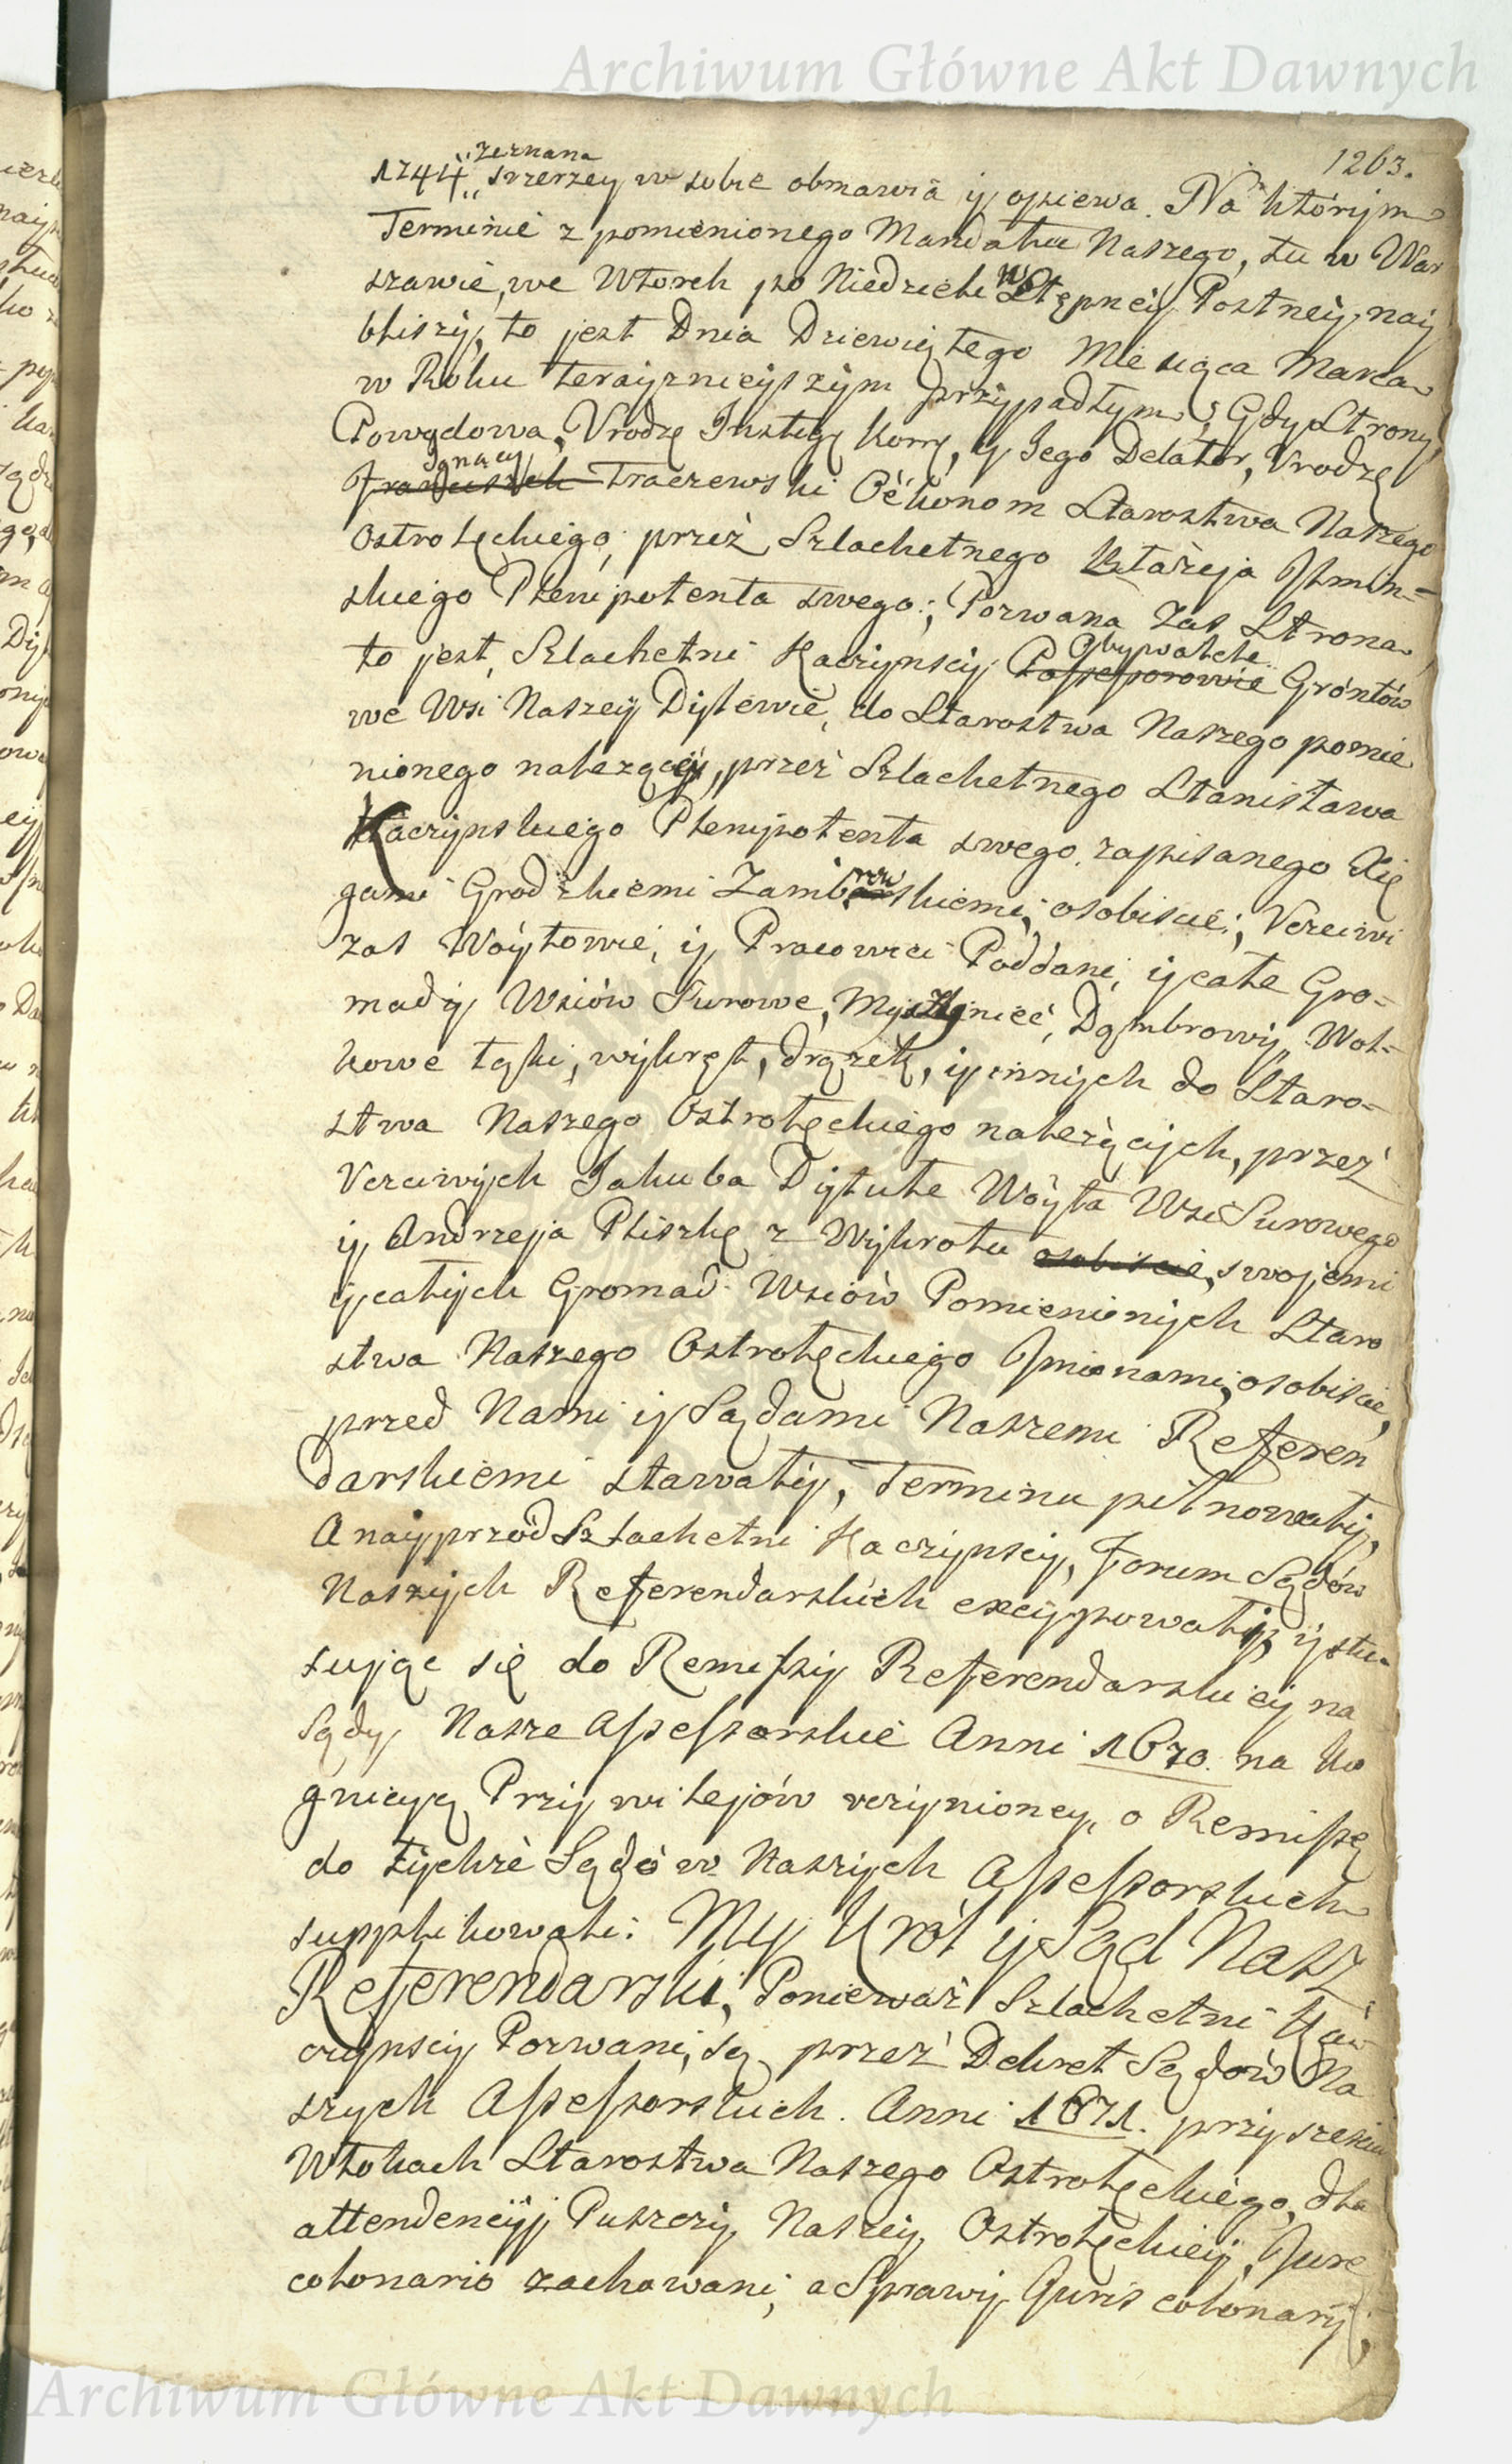 Archiwum Główne Akt Dawnych
1263.
zeznana
1744 szerzey w sobie obmawia y opiewa. Na którym
Terminie z pomienionego Mandatu Naszego, tu w War
szawie, we Wtorek po Niedzieli Wstępney Postney, nay
bliszy, to jest Dnia Dziewiątego Miesiąca Marca
w Roku terayznieyszym przypadłym, Gdy Strony
Powodowa, Vrodzę Instyg Korrę, y Jego Delator, Vrodzę
Ignacy
Franciszek Traczewski Oekonom Starostwa Naszego
Ostrołęckiego, przez Szlachetnego
skiego Plenipotenta swego; Pozwana Zas Strona
Obywatele
to jest, Szlachetni Kaczynscy Possessorowie Gróntów
we Wsi Naszey Dylewie, do Starostwa Naszego pomie
nionego należącey, przez Szlachetnego Stanisława
Kaczynskiego Plenipotenta swego zapisanego Xię
gami Grodzkiemi Zambrowskiemi, osobiscie; Vczciwi
zas Woytowie, y Pracowici Poddani, y całe Gro=
mady Wsiów Surowe, Myszyniec, Dąmbrowy, Wol=
kowe łąski, wykręt, drązek, y innych do Staro=
stwa Naszego Ostrołęckiego należących, przez
Vczciwych Jakuba Dytule Woyta Wsi Surowego
y Andrzeja Pliszkę z Wykrotu osobiscie, swojemi
y całych Gromad Wsiów Pomienionych Staro
stwa Naszego Ostrołęckiego Jmionami, osobiscie,
przed Nami y Sądami Naszemi Referen
darskiemi stawały, Terminu pilnowały,
A nayprzod Szlachetni Kaczynscy, Forum Sądów
Naszych Referendarskich excypowały, y sto-
sując się do Remissy Referendarskiey na
Sądy Nasze Assessorskie Anni 1670. na Ko
gnicyą Przywilejów uczynioney, o Remissę
do tychże Sądów Naszych Assessorskich
supplikowali: My Król y Sąd Nasz
Referendarski, Ponieważ Szlachetni Ka
czynscy Pozwani, są przez Dekret Sądów Na
szych Assessorskich Anni 1671. przy szesciu
Włokach Starostwa Naszego Ostrołęckiego, dla
attendencyi Puszczy Naszey Ostrołęckiey, Jure
colonario zachowani, a Sprawy Juris colonarij,
Archiwum Główne Akt Dawnych